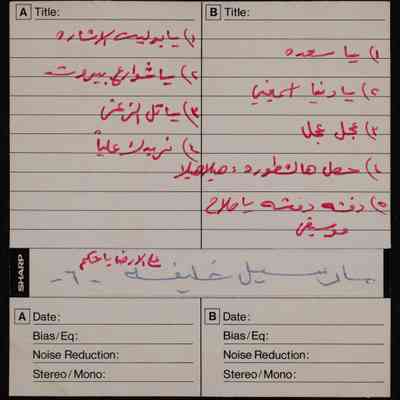 A Title:
١) يا بوليس الإشاره
٢) يا شوارع بيروت
٣) يا تل الزعتر
٤) نريدك علياً
B Title:
١) يا سعده
٢) يا دنيا اسمعيني
٣) عجل عجل
٤) حصل هالخطوره: هيلا هيلا
٥) دقشه دقشه يا صلاح
موسيقى
SHARP
على الارض يا حكم
مارسيل خليفة -٦-
A Date:
Bias/Eq:
Noise Reduction:
Stereo/Mono:
B Date:
Bias/Eq:
Noise Reduction:
Stereo/Mono: